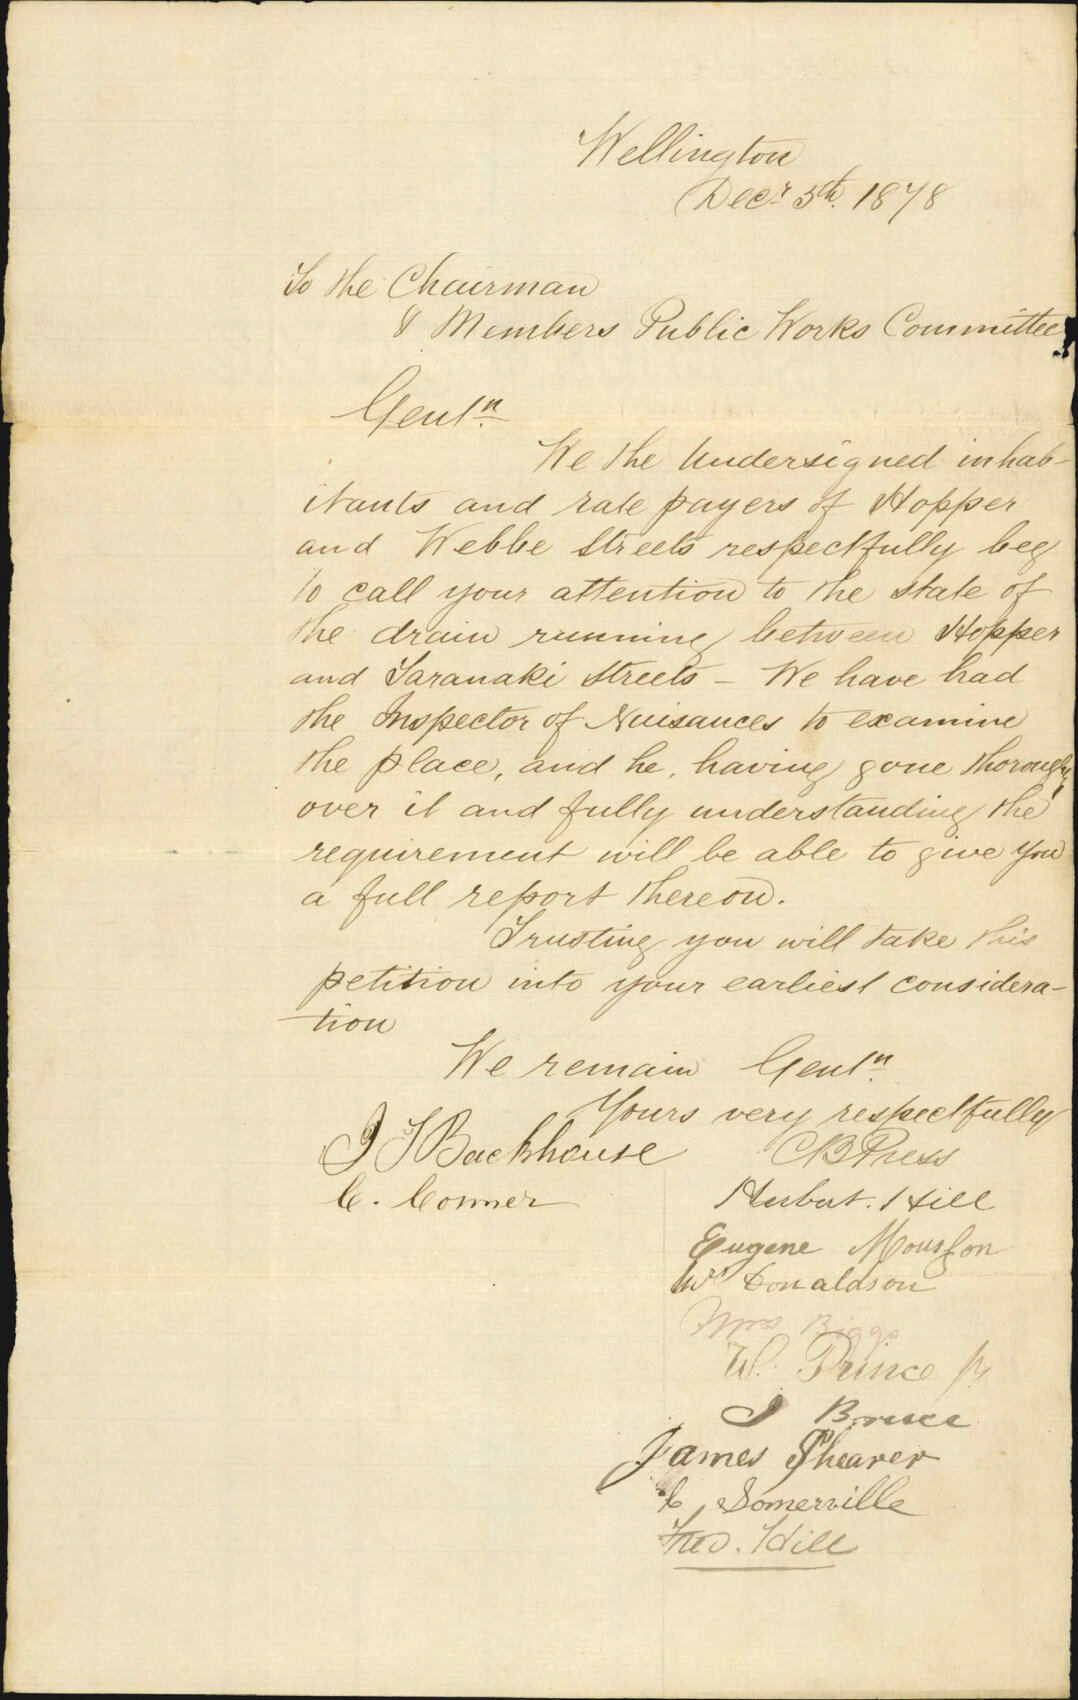 Wellington
Decr 5th. 1878
To the Chairman
& Members Public Works Committee
Gentn.
We the Undersigned inhab-
itants and rate payers of Hopper
and Webbe Streets respectfully beg
to call your attention to the state of
the drain running between Hopper
and Taranaki Streets - We have had
the Inspector of Nuisances to examine
the place, and he, having gone thoroughly
over it and fully understanding the
requirement will be able to give you
a full report thereon.
Trusting you will take this
petition into your earliest considera-
tion
We remain Gentn.
Yours very respectfully
J T Backhouse
CB Press
C. Conner
Herbert. Hill
Eugene
Donaldson
Mrs Biggs
W. Prince Jr
James Shearer
C Somerville
Fred. Hill